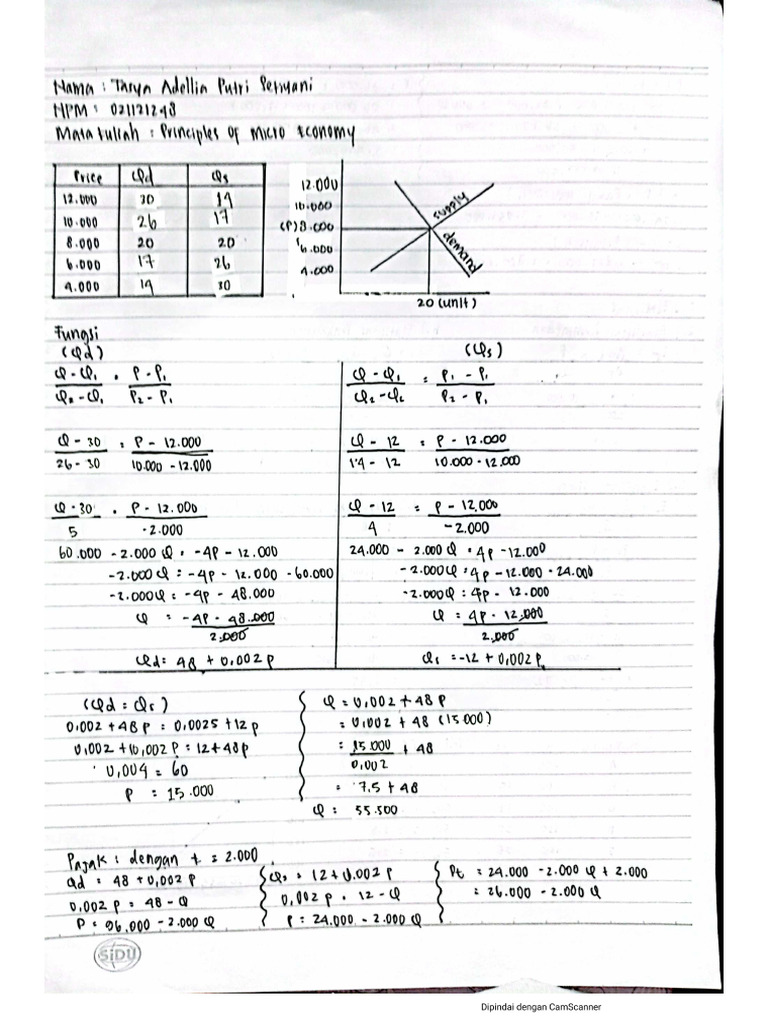 Nama : Tasya Adellia Putri Seriyani
NPM : 021121248
Mata kuliah : Principles of Micro Economy
Price Qd Qs
12.000 30 14
10.000 26 17
8.000 20 20
6.000 17 26
4.000 14 30
12.000
10.000
(P) 8.000
6.000
4.000
supply
demand
20 (unit)
Fungsi
(Qd)
Q - Q1 = P - P1
Q2 - Q1 P2 - P1
Q - 30 = P - 12.000
26 - 30 10.000 - 12.000
Q - 30 = P - 12.000
5 -2.000
60.000 - 2.000 Q = -4P - 12.000
-2.000Q = -4P - 12.000 - 60.000
-2.000Q = -4P - 48.000
Q = -4P - 48.000
2.000
Qd = 48 + 0,002 P
(Qs)
Q - Q1 = P1 - P1
Q2 - Q2 P2 - P1
Q - 12 = P - 12.000
14 - 12 10.000 - 12.000
Q - 12 = P - 12.000
4 -2.000
24.000 - 2.000 Q = 4P - 12.000
-2.000Q = 4P - 12.000 - 24.000
-2.000Q = 4P - 12.000
Q = 4P - 12.000
2.000
Qs = -12 + 0,002 P
(Qd = Qs)
0,002 + 48 P = 0,0025 + 12 P
0,002 + 10,002 P = 12 + 48 P
0,004 = 60
P = 15.000
Q = 0,002 + 48 P
= 0,002 + 48 (15.000)
= 15.000 + 48
0,002
= 7.5 + 48
Q = 55.500
Pajak : dengan t = 2.000
Qd = 48 + 0,002 P
0,002 P = 48 - Q
P = 96.000 - 2.000 Q
Qs = 12 + 0.002 P
0,002 P = 12 - Q
P = 24.000 - 2.000 Q
Pt = 24.000 - 2.000 Q + 2.000
= 26.000 - 2.000 Q
SiDU
Dipindai dengan CamScanner